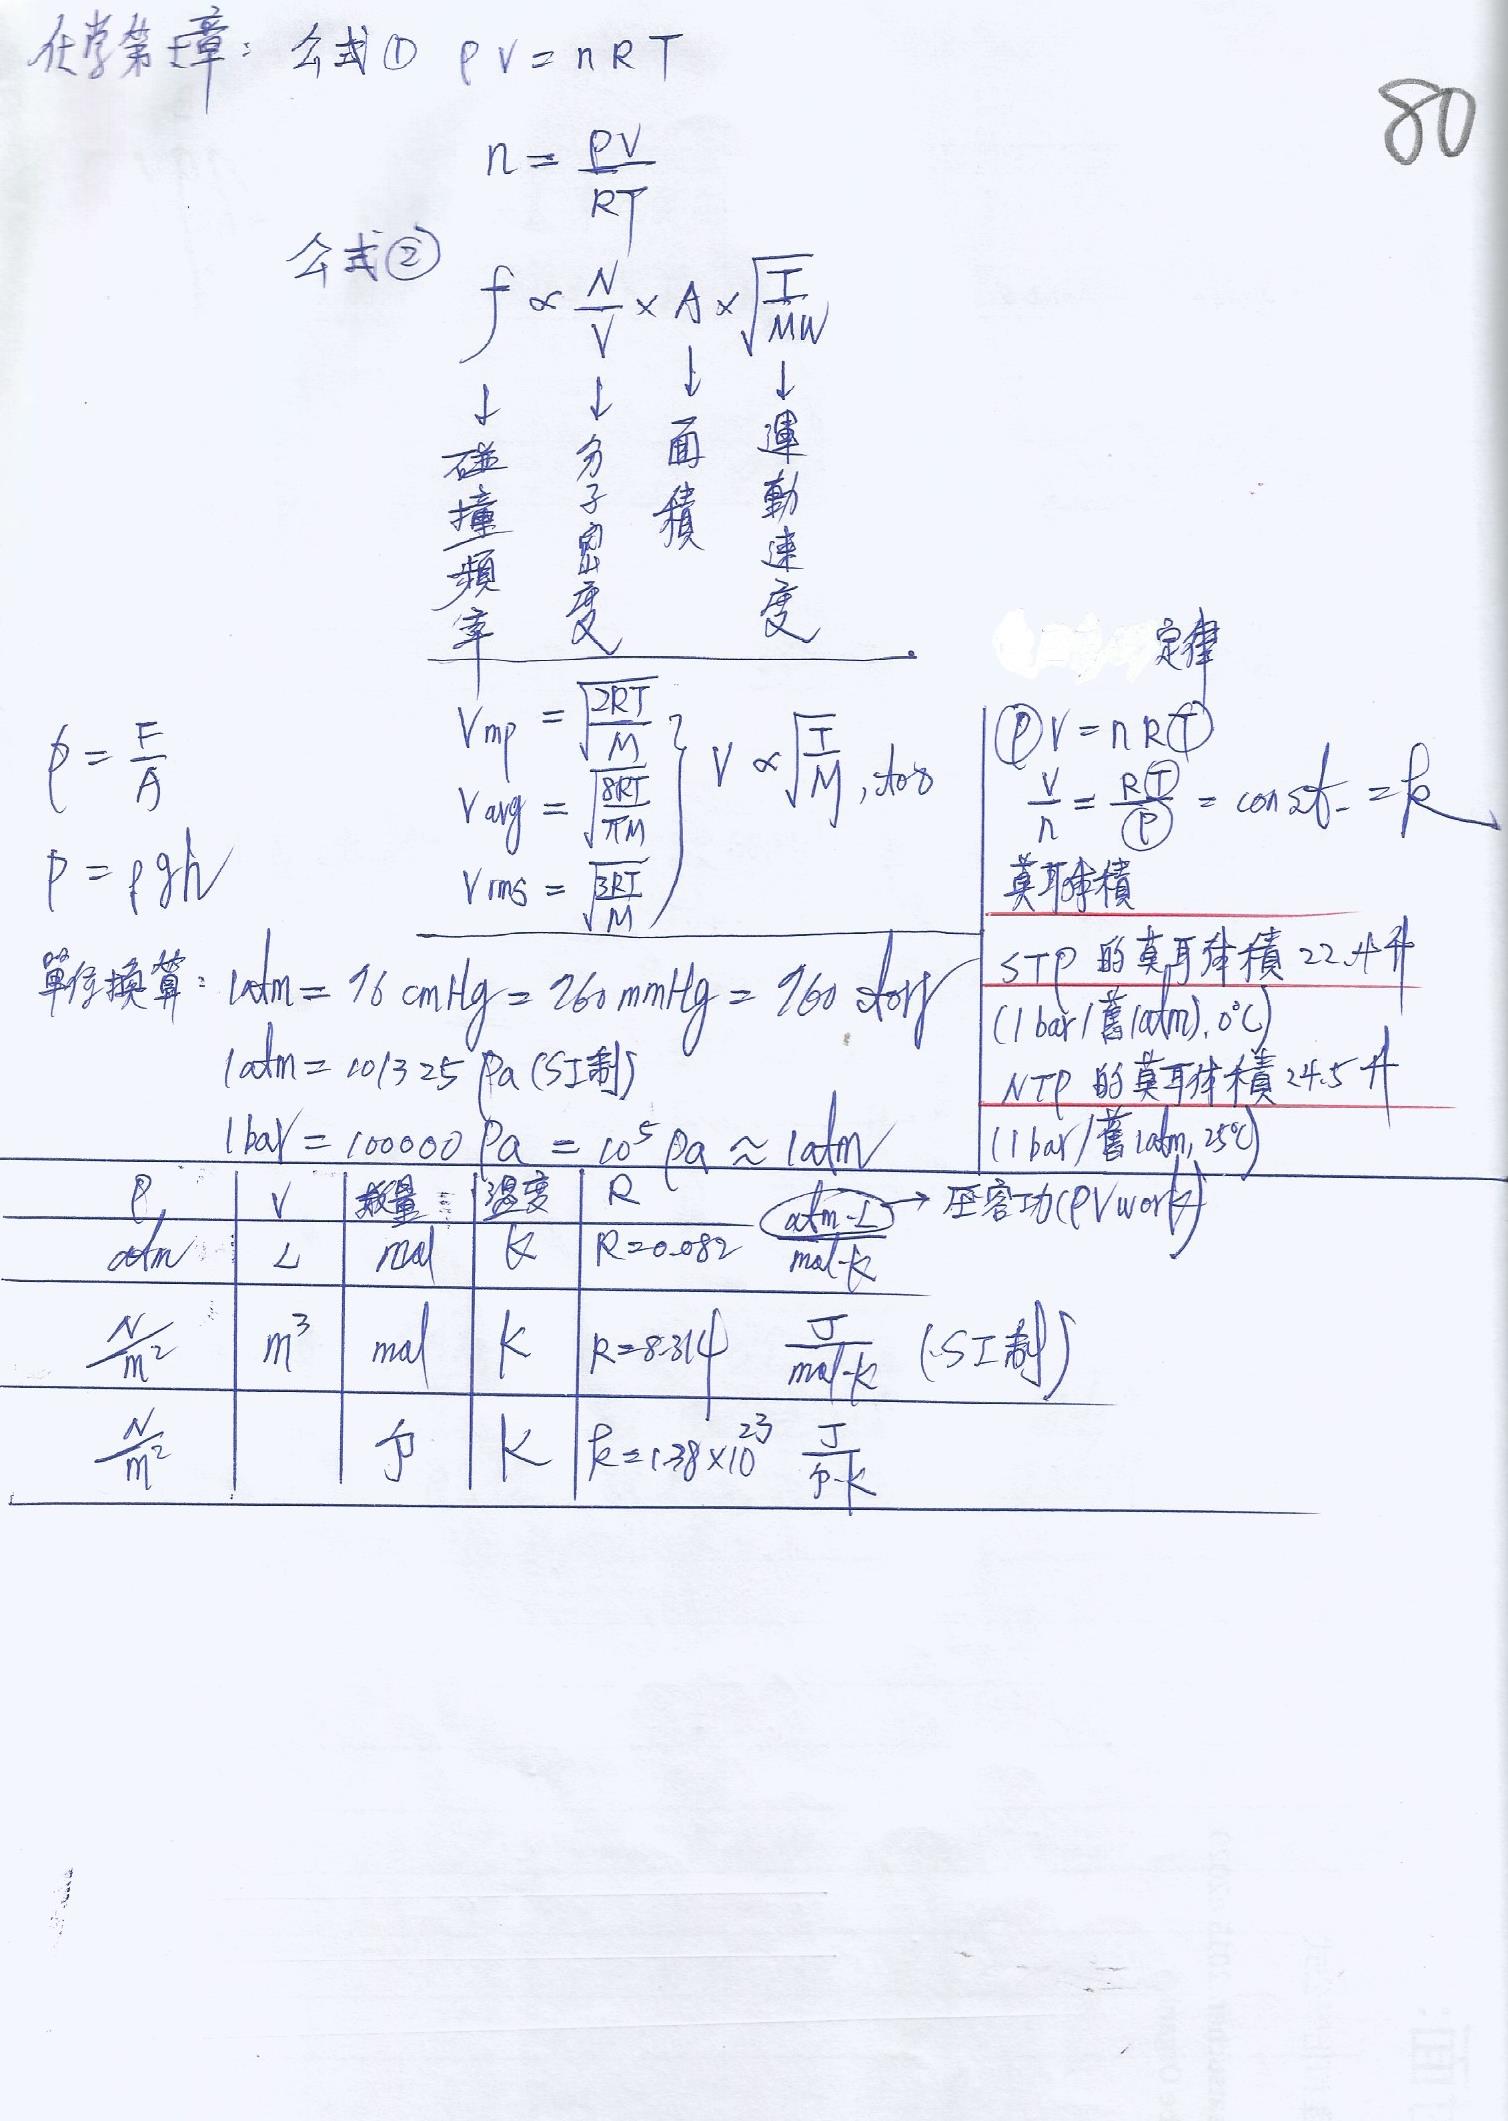 化学第七章: 公式① PV=nRT
80
n = PV/RT
公式②
f ∝ N/V × A × √(T/MW)
↓ ↓ ↓ ↓
碰撞頻率 分子密度 面積 運動速度
定律
P = F/A
P = ρgh
Vmp = √(2RT/M)
Vavg = √(8RT/πM)
Vrms = √(3RT/M)
} V ∝ √(T/M),
ⓅV=nRⓉ
V/n = RⓉ/Ⓟ = const. = k
莫耳体積
STP 的莫耳体積 22.4升
(1 bar/舊1atm), 0°C)
NTP 的莫耳体積 24.5升
(1 bar/舊1atm, 25°C)
單位換算: 1atm = 76 cmHg = 760 mmHg = 760 torr
1atm = 101325 Pa (SI制)
1bar = 100000 Pa = 10⁵ Pa ≈ 1atm
P V 数量 温度 R
atm L mol K R=0.082 atm-L/mol-K → 压容功(PV work)
N/m² m³ mol K R=8.314 J/mol-K (SI制)
N/m² 个 K k=1.38×10²³ J/个-K